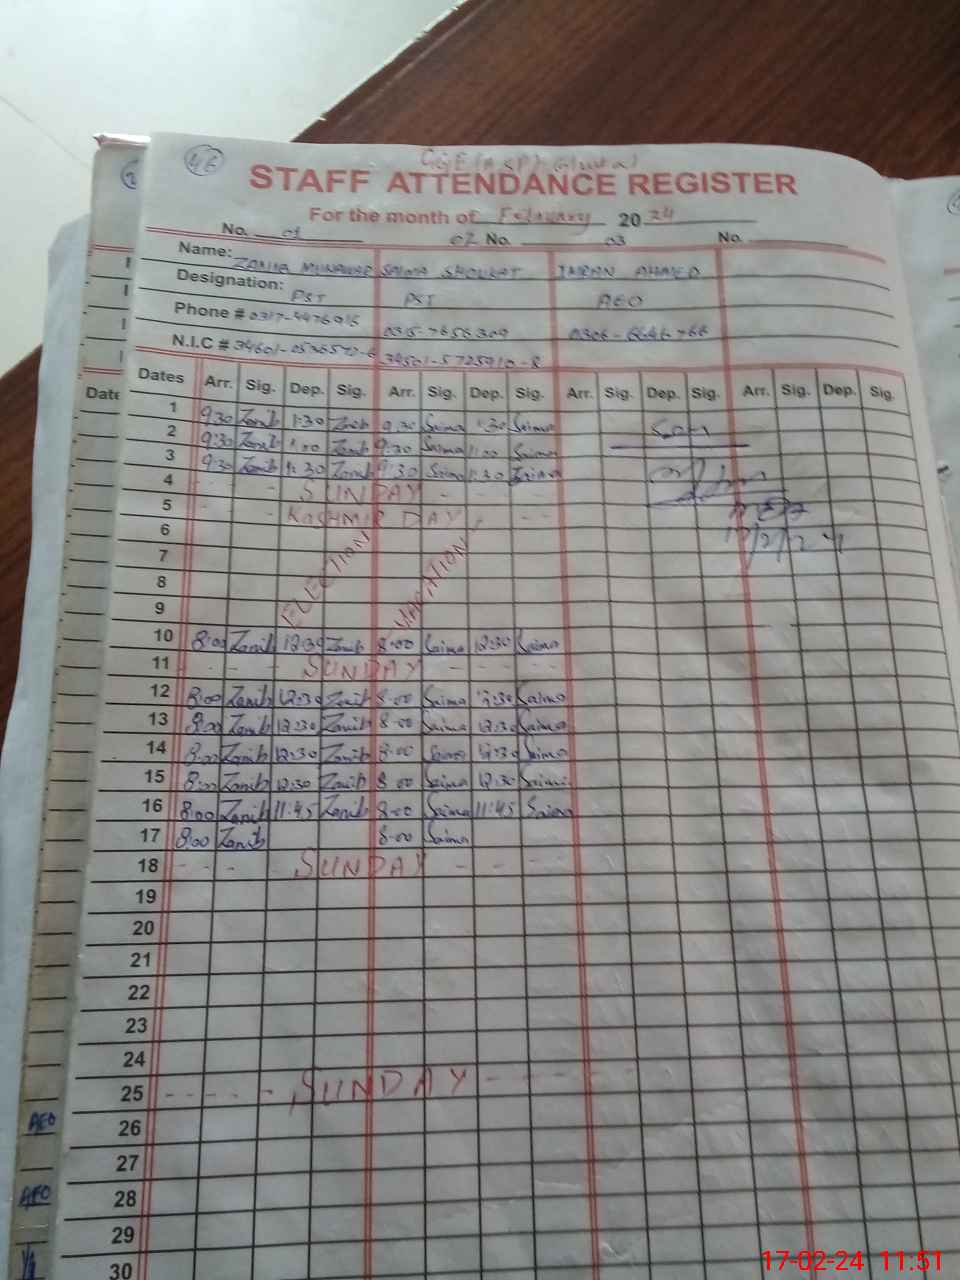 46
STAFF ATTENDANCE REGISTER
For the month of February 2024
No. 01 02 No. 03 No.
Name: ZANIB MUNAWAR SAIMA SHOUKAT IMRAN AHMED
Designation: PST PST AEO
Phone # 0317-4476916 0315-7656309 0306-6646766
N.I.C # 34601-0536572-6 34501-5725910-8
Dates Arr. Sig. Dep. Sig. Arr. Sig. Dep. Sig. Arr. Sig. Dep. Sig. Arr. Sig. Dep. Sig.
Date
1 9:30 Zanib 1:30 Zanib 9:30 Saima 1:30 Saima
2 9:30 Zanib 1:00 Zanib 9:30 Saima 11:00 Saima
3 9:30 Zanib 1:30 Zanib 9:30 Saima 1:30 Saima
4 - - - SUNDAY - - - -
5 - - - KASHMIR DAY - - -
6
7
8
9
ELECTION VACATION
10 8:00 Zanib 12:30 Zanib 8:00 Saima 12:30 Saima
11 - - - SUNDAY - - - -
12 8:00 Zanib 12:30 Zanib 8-00 Saima 12:30 Saima
13 8:00 Zanib 12:30 Zanib 8-00 Saima 12:30 Saima
14 8:00 Zanib 12:30 Zanib 8-00 Saima 12:30 Saima
15 8:00 Zanib 12:30 Zanib 8:00 Saima 12:30 Saima
16 8:00 Zanib 11:45 Zanib 8-00 Saima 11:45 Saima
17 8:00 Zanib 8-00 Saima
18 - - - - SUNDAY - - - -
19
20
21
22
23
24
25 - - - - - SUNDAY - - - - -
26
27
28
29
30
AEO
AEO
17/2/24
17-02-24 11:51